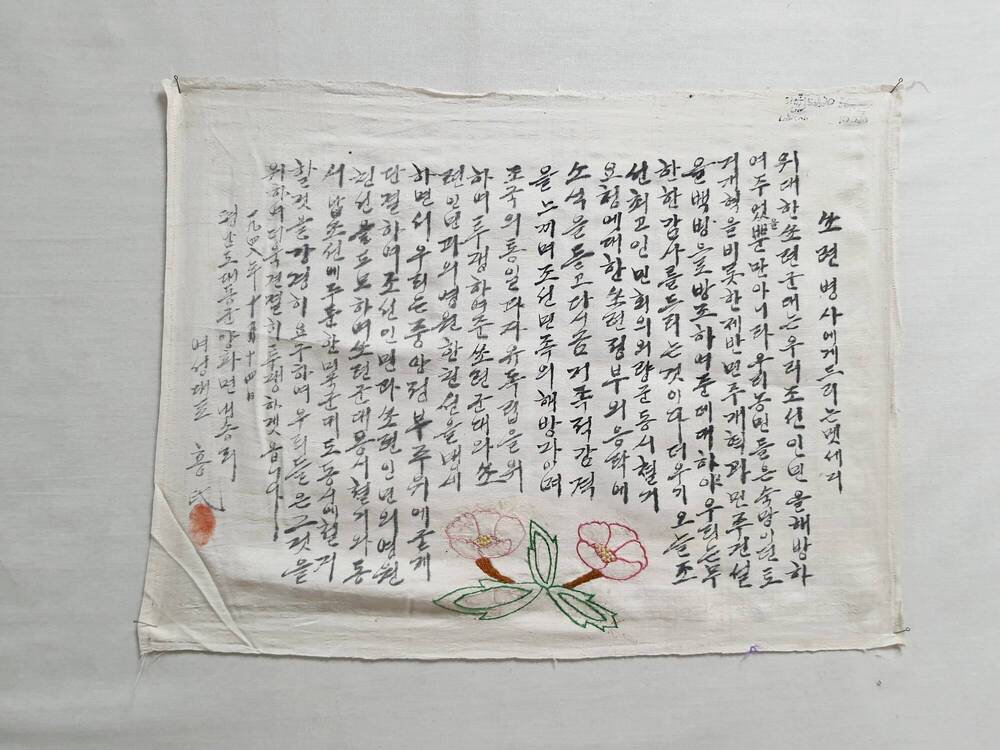 쏘련병사에게드리는멧세지
위대한쏘련군대는우리조선인민을해방하
여주었을뿐만아니라우리농민들은숙망이던토
지개혁을비롯한제반민주개혁과민주건설
을백방으로방조하여준데대하야우리는무
한한감사를드리는것이다더우기오늘조
선최고인민회의의량군동시철거
요청에대한쏘련정부의응락에
소식을듣고다시금거족적감격
을느끼며조선민족의해방과아며
조국의통일과자유독립을위
하며투쟁하여준쏘련군대와쏘
련인민과의영원한친선을맹세
하면서우리는중앙정부주위에굳게
단결하며조선인민과쏘련인민의영원
친선을도모하며쏘련군대동시철거와동
시남조선에주둔한미국군대도동시에철거
할것을강경히요구하며우리들은그것을
위하여더욱견결히투쟁하겟읍니다
一九四八年十月十四日
평안도대동군양화면내송리
여성대표